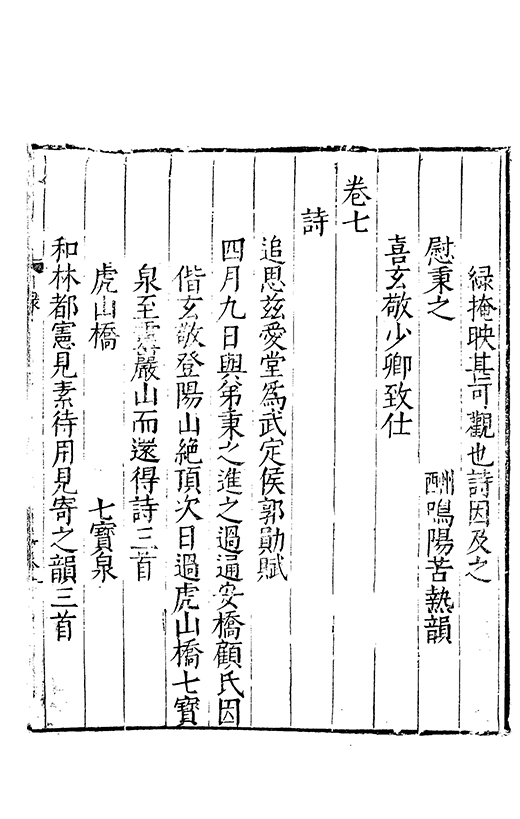 緑掩映甚可觀也詩因及之
慰秉之　酬鳴陽苦熱韻
喜玄敬少卿致仕
卷七
詩
追思兹愛堂爲武定侯郭勛賦
四月九日與弟秉之進之過通安橋顧氏因
偕玄敬登陽山絶頂次日過虎山橋七寶
泉至靈巖山而還得詩三首
虎山橋　七寶泉
和林都憲見素待用見寄之韻三首